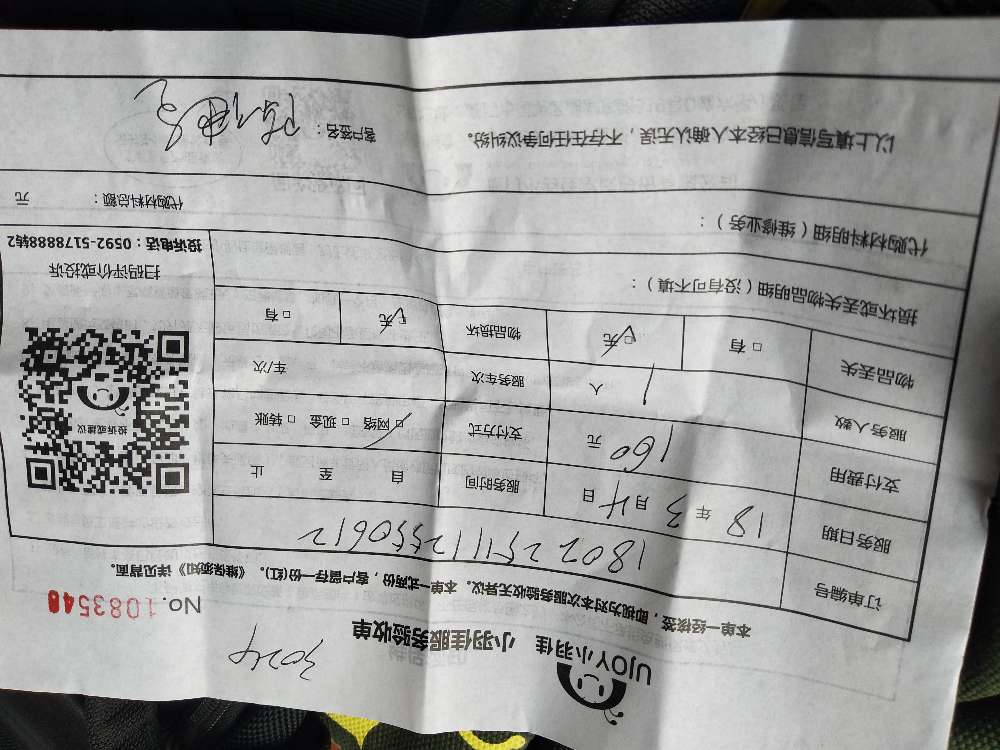 UJOY小羽佳
小羽佳服务验收单
3024
No.1083540
本单一经核签，即视为对本次服务验收无异议。本单一式两份，客户留存一份(红)。《维保须知》详见背面。
订单编号
服务日期 18年3月4日 服务时间 自 至 止
支付费用 160元 支付方式 □网络 □现金 □转账
服务人数 1人 服务车次 车/次
物品丢失 □有 □无 物品损坏 □无 □有
投诉或建议
扫码评价或投诉
投诉电话：0592-5178888转2
损坏或丢失物品明细（没有可不填）：
代购材料明细（维修业务）： 代购材料总额： 元
以上填写信息已经本人确认无误，不存在任何争议纠纷。 客户签名：